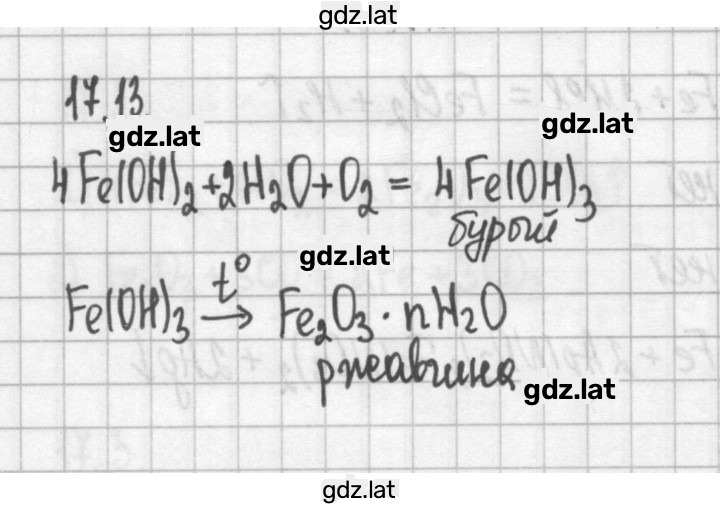 gdz.lat
17.13
gdz.lat
gdz.lat
4Fe(OH)₂+2H₂O+O₂ = 4Fe(OH)₃
бурый
gdz.lat
Fe(OH)₃ t° → Fe₂O₃·nH₂O
ржавчина
gdz.lat
gdz.lat